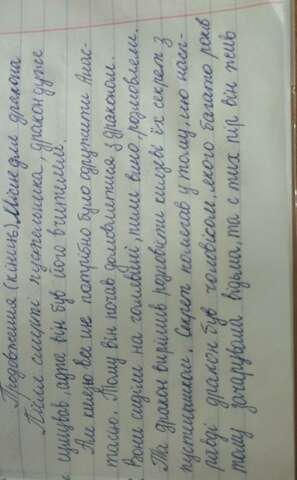 Продовження (кінець) Місце для дракона
Після смерті пустельника, дракон дуже
сумував, адже він був його вчителем.
Але князю все ще потрібно було одружити Анас-
тасію. Тому він почав домовлятися з драконом.
Вони сиділи на галявині, пили вино, розмовляли.
Та дракон вирішив розповісти князеві їх секрет з
пустельником. Секрет полягав у тому, що насп-
равді дракон був чоловіком, якого багато років
тому зачарувала відьма, та с тих пір він жив